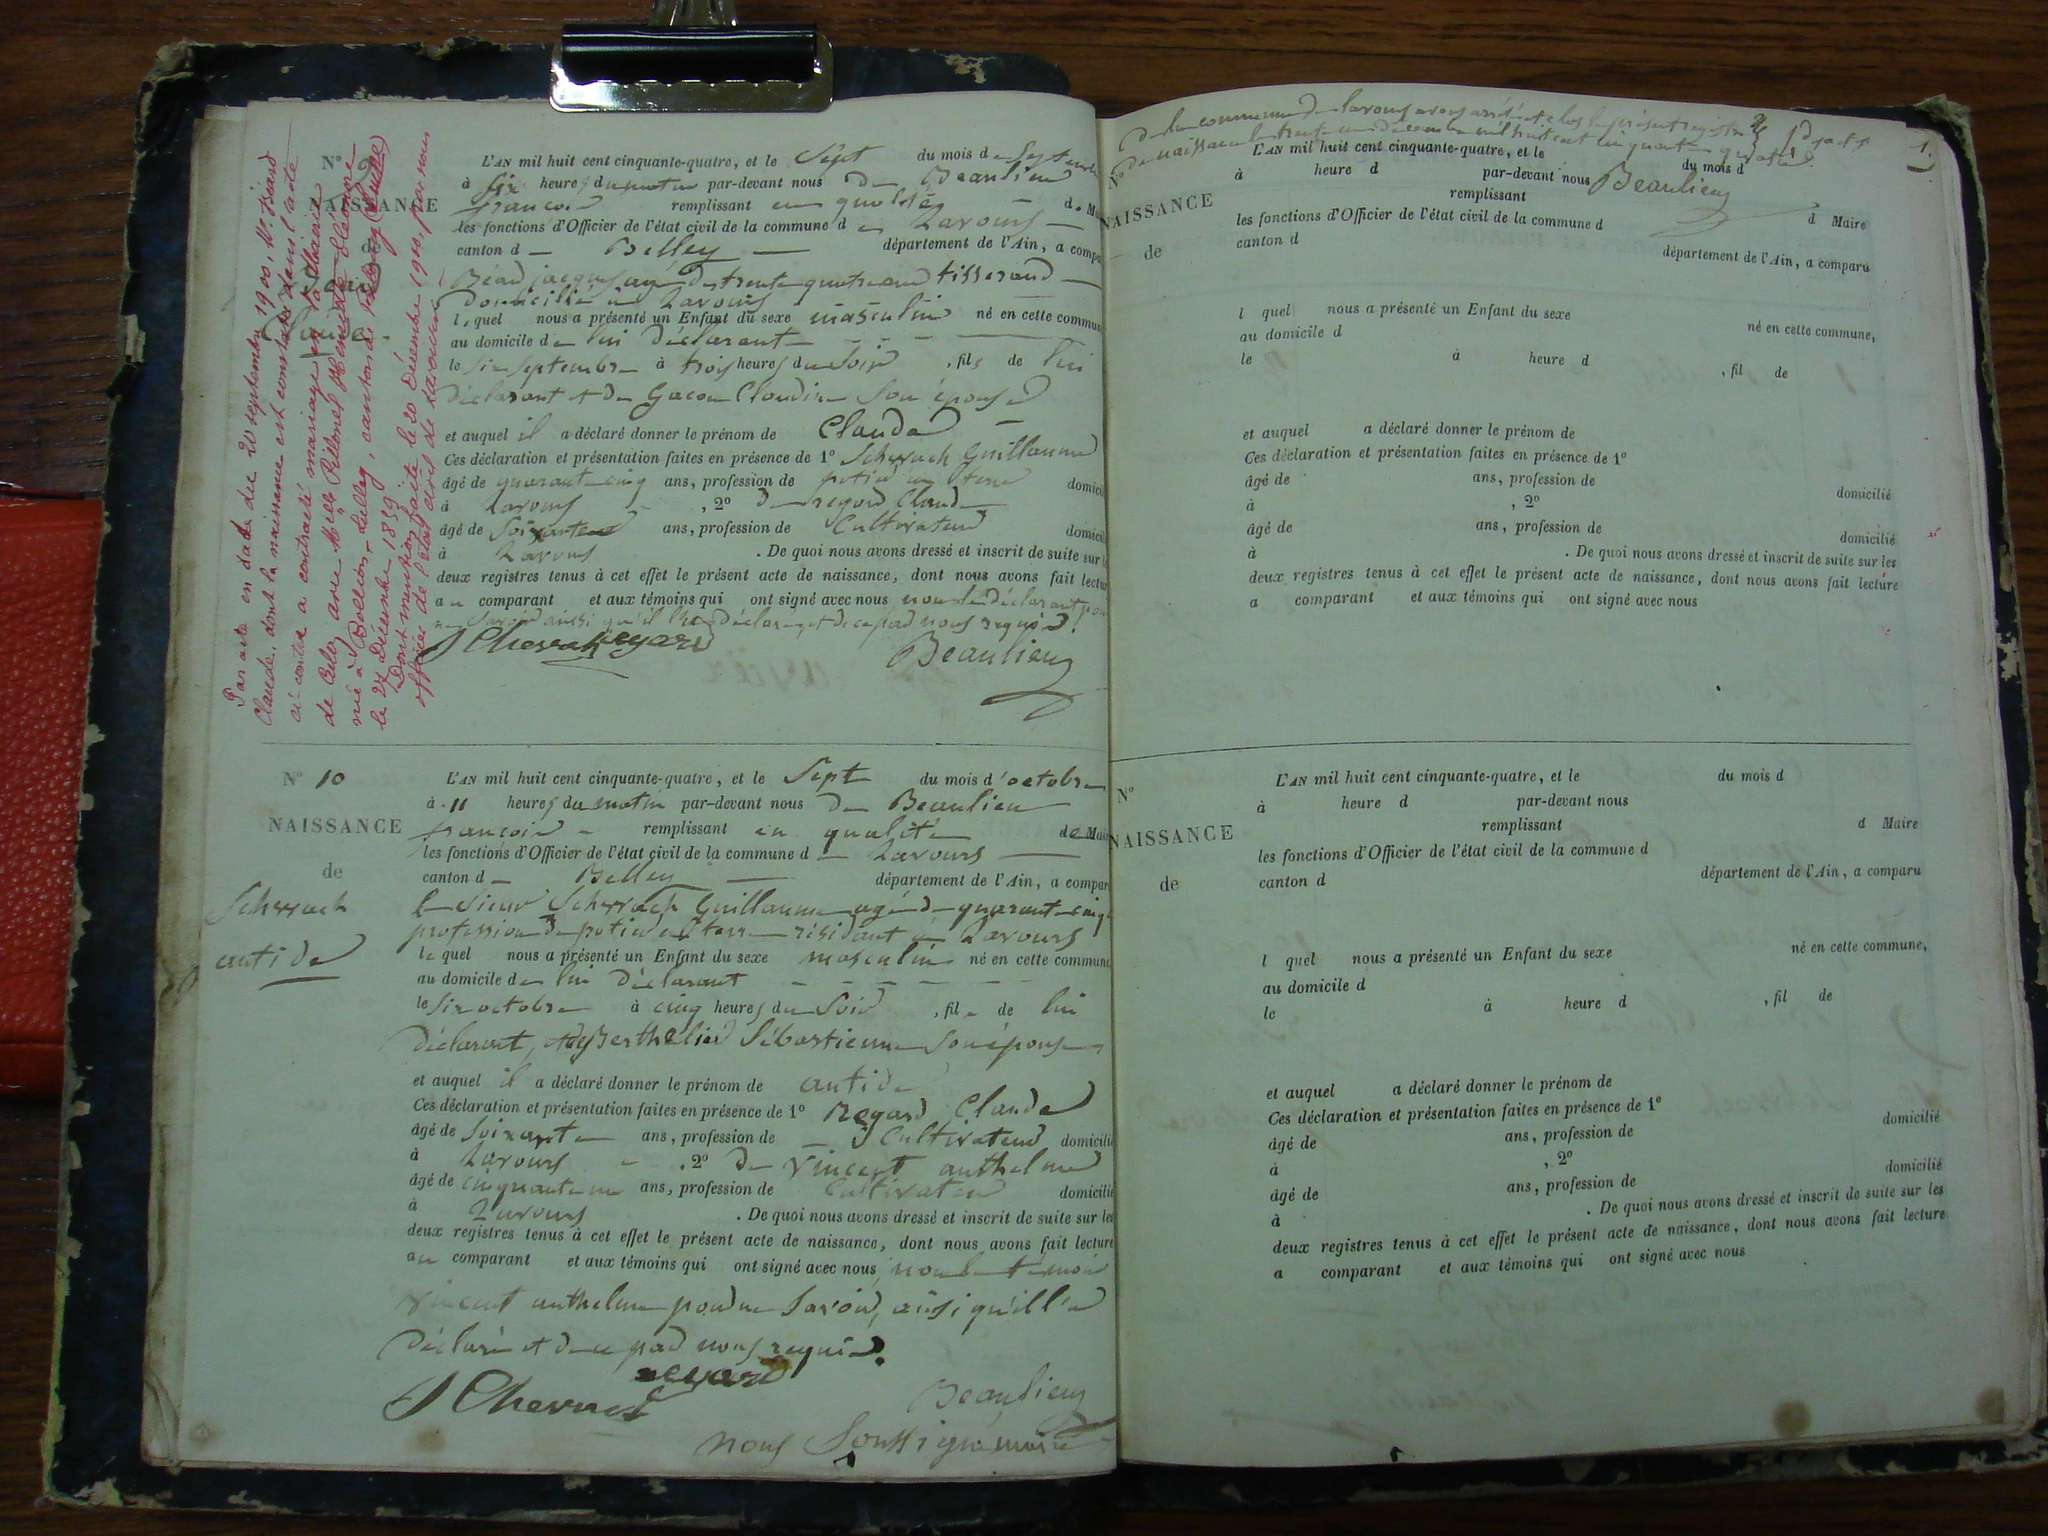 Nº 9
NAISSANCE
de
Béard
Claude
Par acte en date du 20 septembre 1900, Mr Béard
Claude, dont la naissance est constatée dans l'acte
ci-contre a contracté mariage en la Mairie
de avec Mlle
née à, canton de
le 27 Décembre 1859
Dont mention faite le 20 Décembre 1900, par nous
officier de l'état civil de Lavours
L'AN mil huit cent cinquante-quatre, et le Sept du mois de Septembre
à Six heures du matin par-devant nous De Beaulieu
françois remplissant en qualité de Ma
les fonctions d'Officier de l'état civil de la commune de Lavours
canton d Belley département de l'Ain, a compa
Béard jacques agé de trente quatre ans tisserand
Domicilié à Lavours
lequel nous a présenté un Enfant du sexe masculin né en cette commun
au domicile de lui Déclarant
le six septembre à trois heures du Soir, fils de lui
Déclarant et de Gacon Claudine Son épouse
et auquel il a déclaré donner le prénom de Claude
Ces déclaration et présentation faites en présence de 1º Scherrach Guillaume
âgé de quarante cinq ans, profession de potier en terre domicil
à Lavours, 2º de regard Claude
âgé de Soixante ans, profession de Cultivateur domicil
à Lavours. De quoi nous avons dressé et inscrit de suite sur l
deux registres tenus à cet effet le présent acte de naissance, dont nous avons fait lectur
au comparant et aux témoins qui ont signé avec nous non le déclarant pour
ne Savoir ainsi qu'il l'a Déclaré et de ce par nous requis
regard Beaulieu
Nº 10
NAISSANCE
de
Scherrach
antide
L'AN mil huit cent cinquante-quatre, et le Sept du mois d'octobre
à 11 heures du matin par-devant nous De Beaulieu
françois remplissant en qualité de Mair
les fonctions d'Officier de l'état civil de la commune d Lavours
canton d Belley département de l'Ain, a compar
le Sieur Scherrach Guillaume agé de quarante cinq
profession de potier en terre résidant à Lavours
lequel nous a présenté un Enfant du sexe masculin né en cette commune
au domicile de lui Déclarant
le Six octobre à cinq heures du Soir, fils de lui
Déclarant, et de Berthelier Sébastienne Son épouse
et auquel il a déclaré donner le prénom de antide
Ces déclaration et présentation faites en présence de 1º Regard Claude
âgé de Soixante ans, profession de Cultivateur domicilié
à Lavours, 2º de Vincent anthelme
âgé de cinquante un ans, profession de Cultivateur domicilié
à Lavours. De quoi nous avons dressé et inscrit de suite sur les
deux registres tenus à cet effet le présent acte de naissance, dont nous avons fait lecture
au comparant et aux témoins qui ont signé avec nous non le témoin
Vincent anthelme pour ne Savoir, ainsi qu'il l'a
Déclaré et de ce par nous requis.
regard
Beaulieu
nous Soussigné maire
de la commune de lavours avons arrêté et clos le présent registre
de naissance le trente un Décembre mil huit cent cinquante quatre
Beaulieu
Nº
NAISSANCE
de
L'AN mil huit cent cinquante-quatre, et le du mois d
à heure d par-devant nous
remplissant d Maire
les fonctions d'Officier de l'état civil de la commune d
canton d département de l'Ain, a comparu
l quel nous a présenté un Enfant du sexe né en cette commune,
au domicile d
le à heure d, fil de
et auquel a déclaré donner le prénom de
Ces déclaration et présentation faites en présence de 1º
âgé de ans, profession de domicilié
à, 2º
âgé de ans, profession de domicilié
à. De quoi nous avons dressé et inscrit de suite sur les
deux registres tenus à cet effet le présent acte de naissance, dont nous avons fait lecture
a comparant et aux témoins qui ont signé avec nous
Nº
NAISSANCE
de
L'AN mil huit cent cinquante-quatre, et le du mois d
à heure d par-devant nous
remplissant d Maire
les fonctions d'Officier de l'état civil de la commune d
canton d département de l'Ain, a comparu
l quel nous a présenté un Enfant du sexe né en cette commune,
au domicile d
le à heure d, fil de
et auquel a déclaré donner le prénom de
Ces déclaration et présentation faites en présence de 1º
âgé de ans, profession de domicilié
à, 2º
âgé de ans, profession de domicilié
à. De quoi nous avons dressé et inscrit de suite sur les
deux registres tenus à cet effet le présent acte de naissance, dont nous avons fait lecture
a comparant et aux témoins qui ont signé avec nous